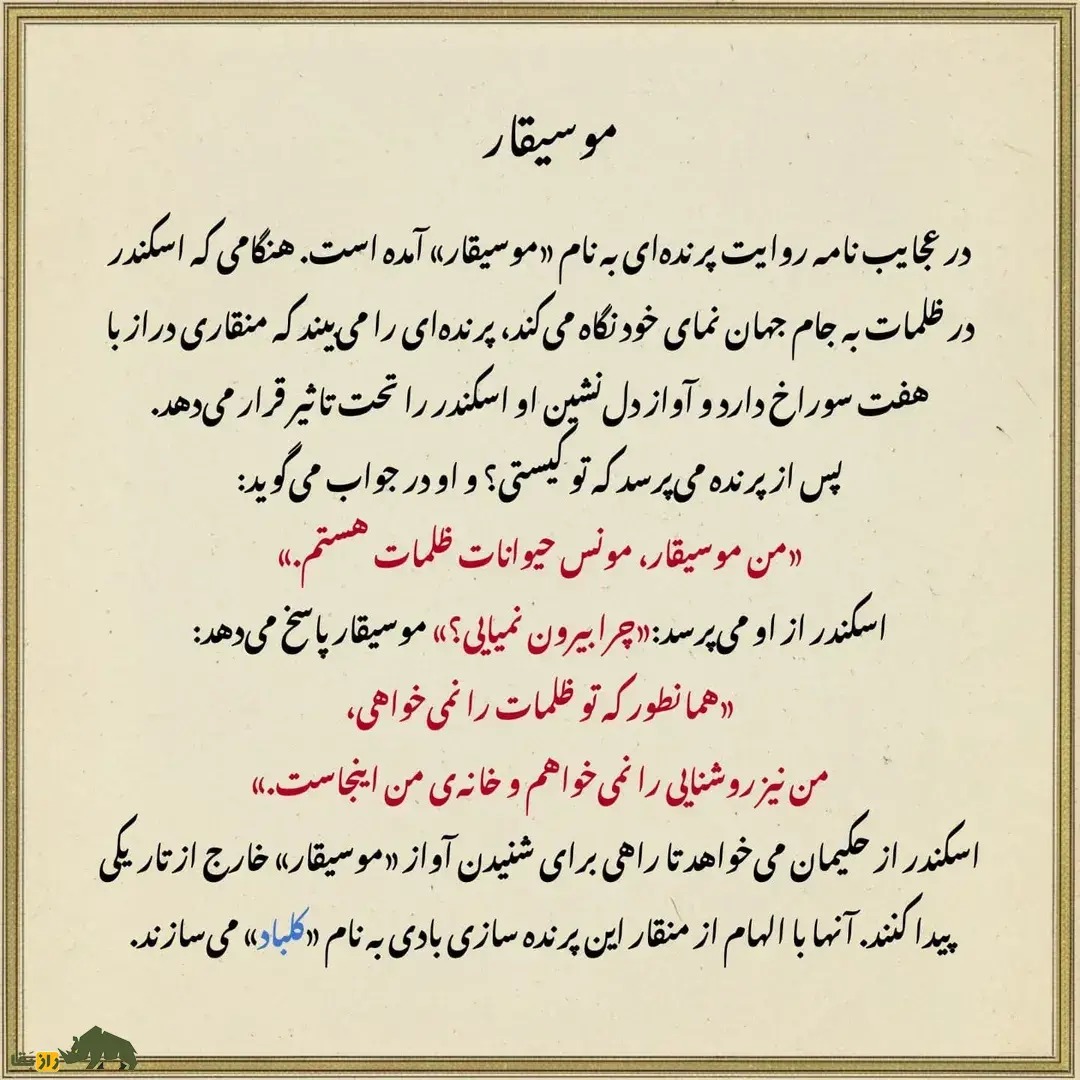 موسیقار
در عجایب نامه روایت پرنده‌ای به نام «موسیقار» آمده است. هنگامی که اسکندر
در ظلمات به جام جهان نمای خود نگاه می‌کند، پرنده‌ای را می‌بیند که منقاری دراز با
هفت سوراخ دارد و آواز دل نشین او اسکندر را تحت تاثیر قرار می‌دهد.
پس از پرنده می‌پرسد که تو کیستی؟ و او در جواب می‌گوید:
«من موسیقار، مونس حیوانات ظلمات هستم.»
اسکندر از او می‌پرسد: «چرا بیرون نمیایی؟» موسیقار پاسخ می‌دهد:
«همانطور که تو ظلمات را نمی‌خواهی،
من نیز روشنایی را نمی‌خواهم و خانه‌ی من اینجاست.»
اسکندر از حکیمان می‌خواهد تا راهی برای شنیدن آواز «موسیقار» خارج از تاریکی
پیدا کنند. آنها با الهام از منقار این پرنده سازی بادی به نام «کلباد» می‌سازند.
راز بقا